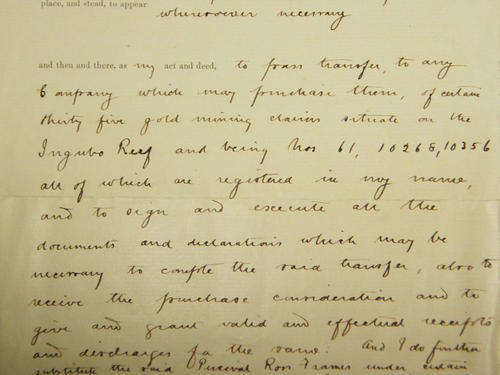 place, and stead, to appear
wheresoever necessary
and then and there, as my act and deed, to pass transfer, to any
Company which may purchase them, of certain
thirty five gold mining claims situate on the
Ingubo Reef and being Nos 61, 10268, 10356
all of which are registered in my name,
and to sign and execute all the
documents and declarations which may be
necessary to complete the said transfer, also to
receive the purchase consideration and to
give and grant valid and effectual receipts
and discharges for the same. And I do further
substitute the said Percival Ross Frames under certain